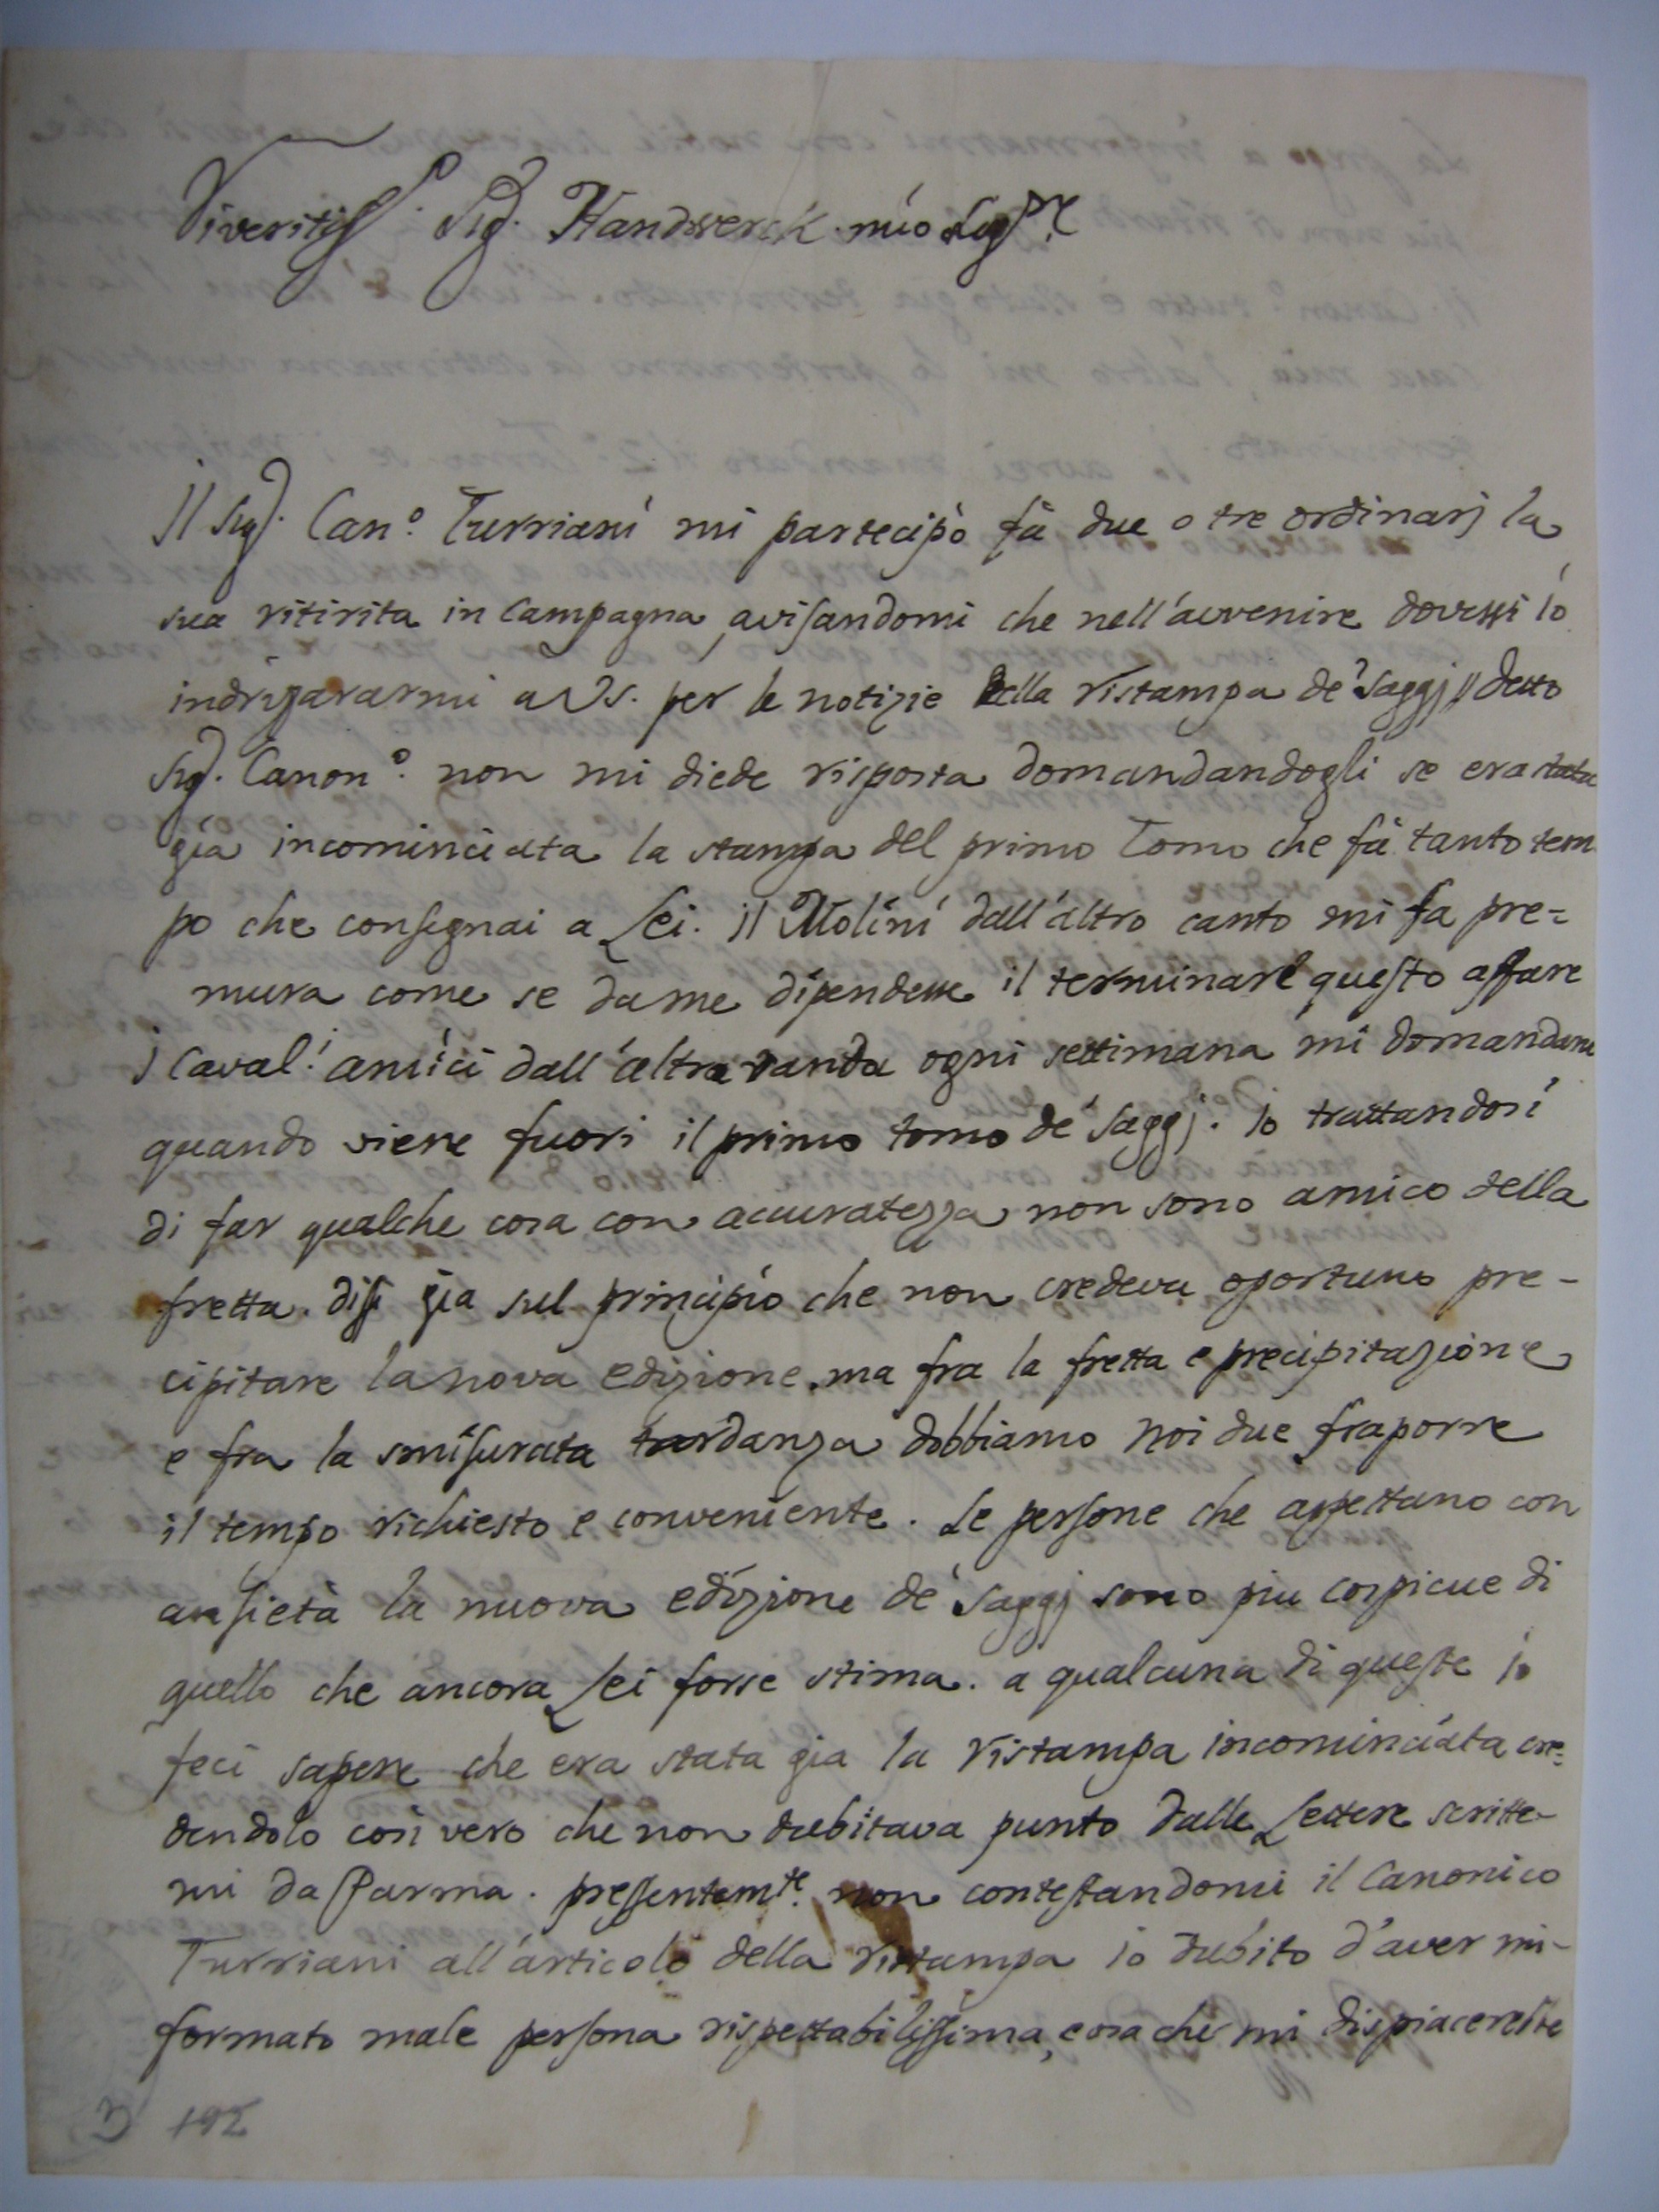 Riveritiss.º Sig.r Handwerck mio Sig.re
Il Sig.r Can.º Turriani mi partecipò fà due o tre ordinarj la
sua ritirita in Campagna, avisandomi che nell'avvenire dovessi io
indrizararmi a V.S. per le notizie della ristampa de' Saggj, detto
Sig.r Canon.º non mi diede risposta domandandogli se era stata
già incominciata la stampa del primo Tomo che fà tanto tem
po che consegnai a Lei. il Molini dall'altro canto mi fa pre=
mura come se da me dipendesse il terminare questo affare
i Caval.i amici dall'altra banda ogni settimana mi domandano
quando viene fuori il primo tomo de' Saggj. Io trattandosi
di far qualche cosa con accuratezza non sono amico della
fretta. dissi gia sul principio che non credeva oportuno pre-
cipitare la nova edizione. ma fra la fretta e precipitazione
e fra la smisurata tardanza dobbiamo noi due fraporre
il tempo richiesto e conveniente. Le persone che aspettano con
ansietà la nuova edizione de' Saggj sono piu cospicue di
quello che ancora Lei forse stima. a qualcuna di queste io
feci sapere che era stata gia la ristampa incominciata cre=
dendolo così vero che non dubitava punto dalle Lettere scritte-
mi da Parma. presentem.te non contestandomi il Canonico
Turriani all'articolo della ristampa io dubito d'aver in-
formato male persona rispettabilissima, cosa che mi dispiacerebbe
192